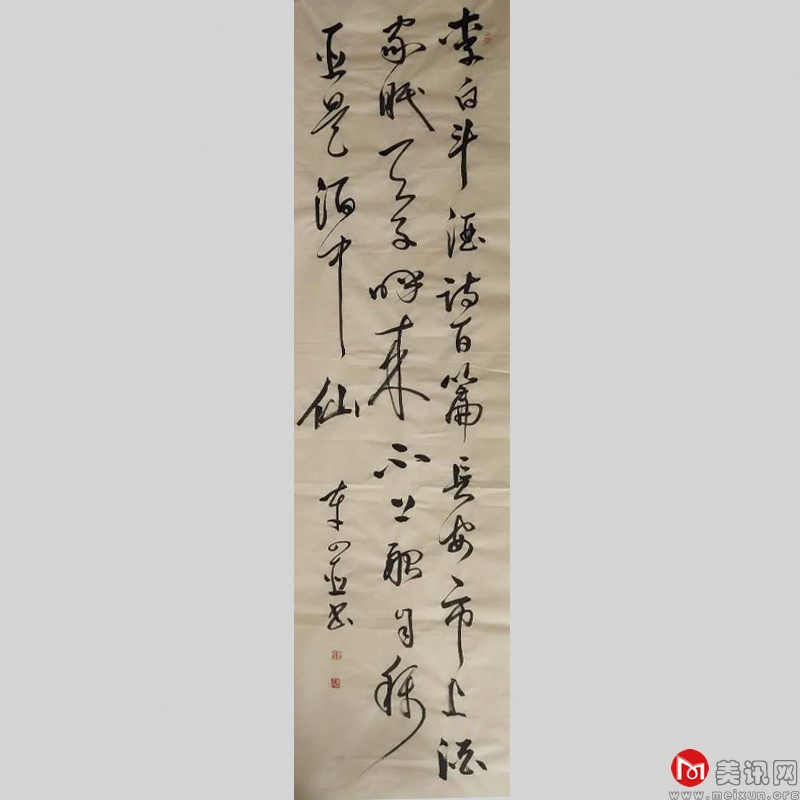 李白斗酒诗百篇长安市上酒
家眠天子呼来不上船自称
臣是酒中仙
美讯网
www.meixun.org